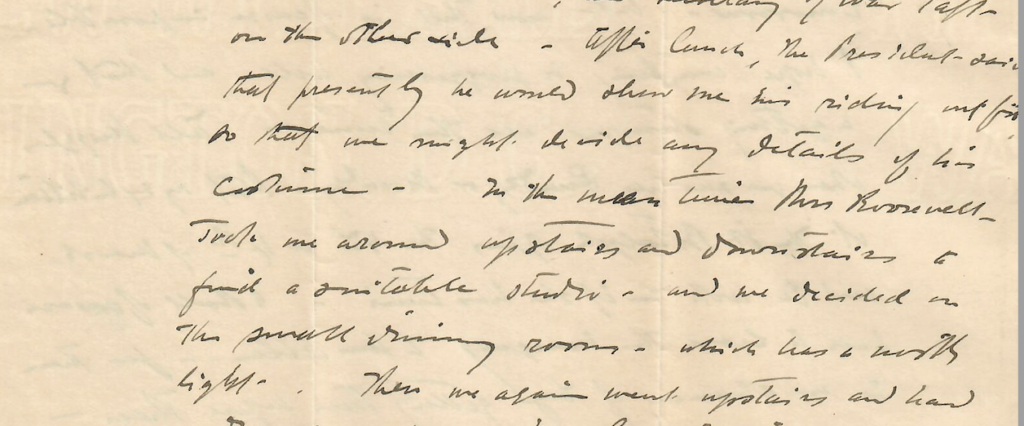 Secretary of War Taft
on the other side - After lunch, the President said
that presently he would show me his riding outfit
so that we might decide any details of his
costume - In the mean time Mrs Roosevelt
took me around upstairs and downstairs to
find a suitable studio - and we decided on
the small dining room - which has a north
light - . Then we again went upstairs and had